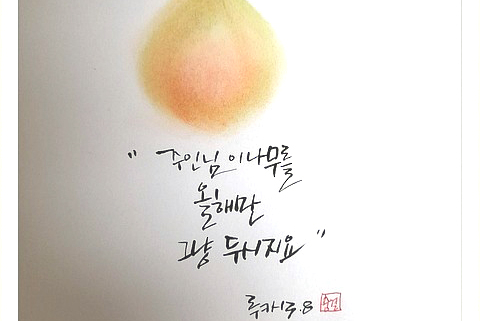 "주인님 이나무를
올해만
그냥 두시지요"
루카13.8